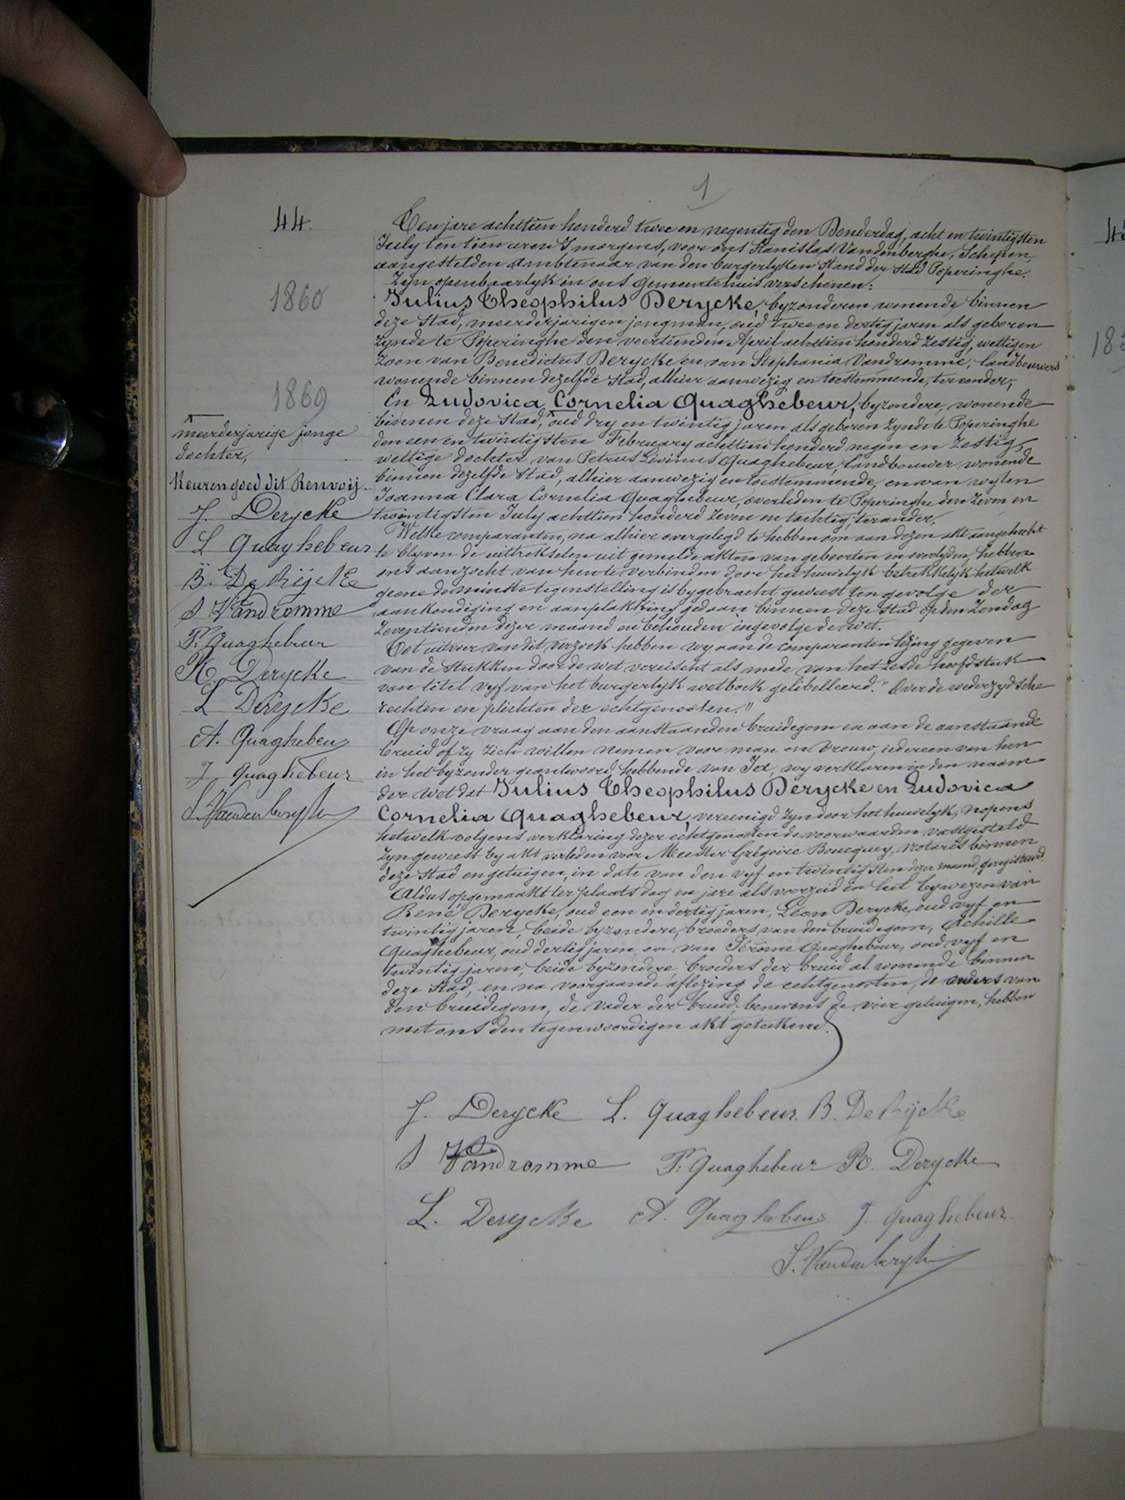 1
44.
Ten jare achttien honderd twee en negentig den Donderdag, acht en twintigsten
July ten tien uren 's morgens, voor ons Stanislas Vandenberghe, Schepen,
aangestelden Ambtenaar van den burgerlyken Stand der Stad Poperinghe.
Zyn openbaarlyk in ons gemeentehuis verschenen:
1860
Julius Theophilus Derycke, byzonderen wonende binnen
deze Stad, meerderjarigen jongman, oud twee en dertig jaren als geboren
zynde te Poperinghe den veertienden April achttien honderd zestig, wettigen
zoon van Benedictus Derycke en van Stephania Vandromme, landbouwers
wonende binnen dezelfde stad, alhier aanwezig en toestemmende, ter eender,
1869
En Ludovica Cornelia Quaghebeur, byzondere, wonende
binnen deze Stad, oud dry en twintig jaren als geboren zynde te Poperinghe
den een en twintigsten February achttien honderd negen en zestig,
wettige dochter van Petrus Livinus Quaghebeur, landbouwer wonende
binnen dezelfde Stad, alhier aanwezig en toestemmende, en van wylen
Joanna Clara Cornelia Quaghebeur, overleden te Poperinghe den zeven en
twintigsten July achttien honderd zeven en tachtig, ter ander.
meerderjarige jonge
dochter,
Keuren goed dit Renvooij.
J. Derycke
L Quaghebeur
B. De Rijcke
S Vandromme
P. Quaghebeur
R. Derycke
L Derycke
A. Quaghebeur
J. Quaghebeur
S. Vandenberghe
Welke comparanten, na alhier overgelegd te hebben om aan dezen akt aangehecht
te blyven de uittrekselen uit gemelde akten van geboorten en overlyden, hebben
ons aanzocht van hun te verbinden door het huwelyk betrekkelyk hetwelk
geene de minste tegenstelling is bygebracht geweest ten gevolge der
aankondiging en aanplakking gedaan binnen deze stad op den Zondag
zeventienden dezer maand en behouden ingevolge de wet.
Tot uitvoer van dit verzoek hebben wy aan de comparanten lezing gegeven
van de stukken door de wet vereischt als mede van het zesde hoofdstuk
van titel vyf van het burgerlyk wetboek gelibelleerd: "Over de wederzydsche
rechten en plichten der echtgenooten."
Op onze vraag aan den aanstaanden bruidegom en aan de aanstaande
bruid of zy zich willen nemen voor man en vrouw, iedereen van hen
in het byzonder geantwoord hebbende van Ja, wy verklaren in den naam
der wet dat Julius Theophilus Derycke en Ludovica
Cornelia Quaghebeur, vereenigd zyn door het huwelyk, nopens
hetwelk volgens verklaring dezer echtgenooten de voorwaarden vastgesteld
zyn geweest by akt verleden voor Meester Grégoire Boucquey, notaris binnen
deze Stad en getuigen, in date van den vyf en twintigsten dezer maand, geregistreerd.
Aldus opgemaakt ter plaats dag en jare als voorzeid in het bywezen van
René Derycke, oud een en dertig jaren, Léon Derycke, oud vyf en
twintig jaren, beide byzondere, broeders van den bruidegom, Achille
Quaghebeur, oud dertig jaren, en van Jérome Quaghebeur, oud vyf en
twintig jaren, beide byzondere, broeders der bruid al wonende binnen
deze Stad, en na voorgaande aflezing de echtgenooten, de ouders van
den bruidegom, de vader der bruid, benevens de vier getuigen, hebben
met ons den tegenwoordigen akt geteekend.
J. Derycke L. Quaghebeur. B. De Rijcke
S Vandromme P. Quaghebeur R. Derycke
L. Derycke A. Quaghebeur J. Quaghebeur.
S. Vandenberghe